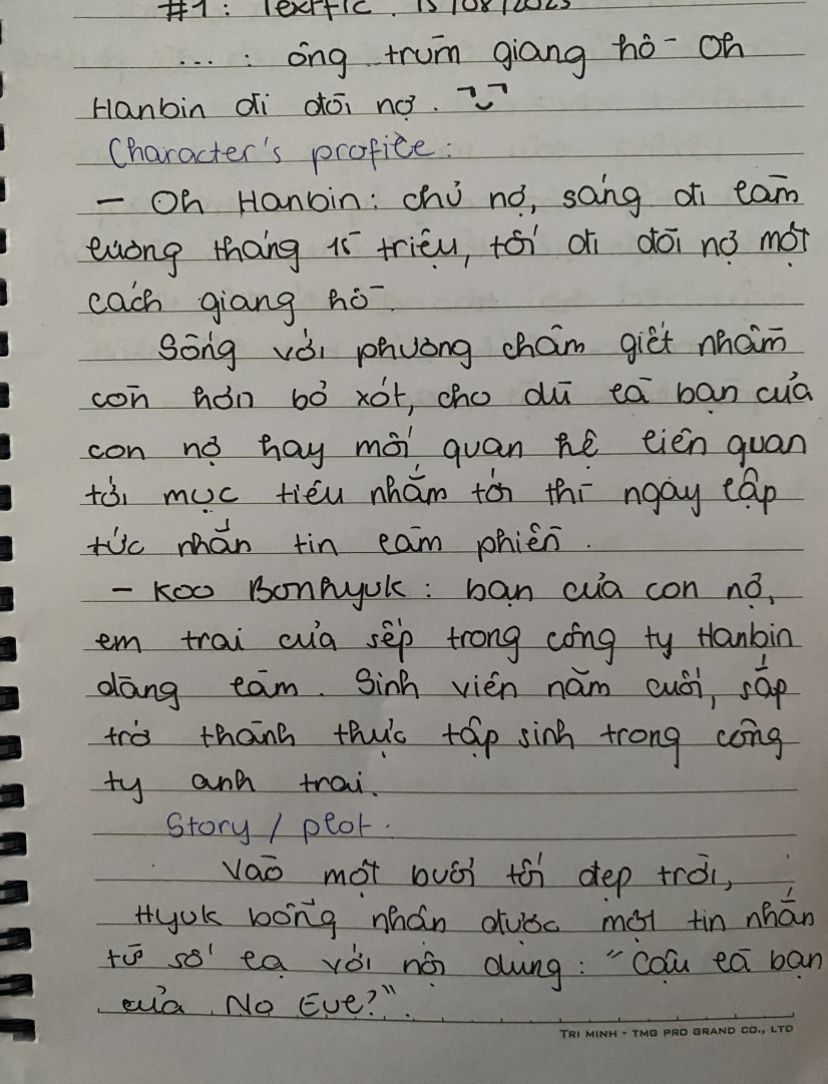 #1: Textfic. 15/08/2023
... : ông trùm giang hồ - Oh
Hanbin đi đòi nợ.
Character's profile:
- Oh Hanbin: chủ nợ, sáng đi làm
lương tháng 15 triệu, tối đi đòi nợ một
cách giang hồ.
Sống với phương châm giết nhầm
còn hơn bỏ xót, cho dù là bạn của
con nợ hay mối quan hệ liên quan
tới mục tiêu nhắm tới thì ngay lập
tức nhắn tin làm phiền.
- Koo Bonhyuk: bạn của con nợ,
em trai của sếp trong công ty Hanbin
đang làm. Sinh viên năm cuối, sắp
trở thành thực tập sinh trong công
ty anh trai.
Story / plot.
Vào một buổi tối đẹp trời,
Hyuk bỗng nhận được một tin nhắn
từ số lạ với nội dung: "Cậu là bạn
của No Eue?".
TRI MINH - TMG PRO GRAND CO., LTD